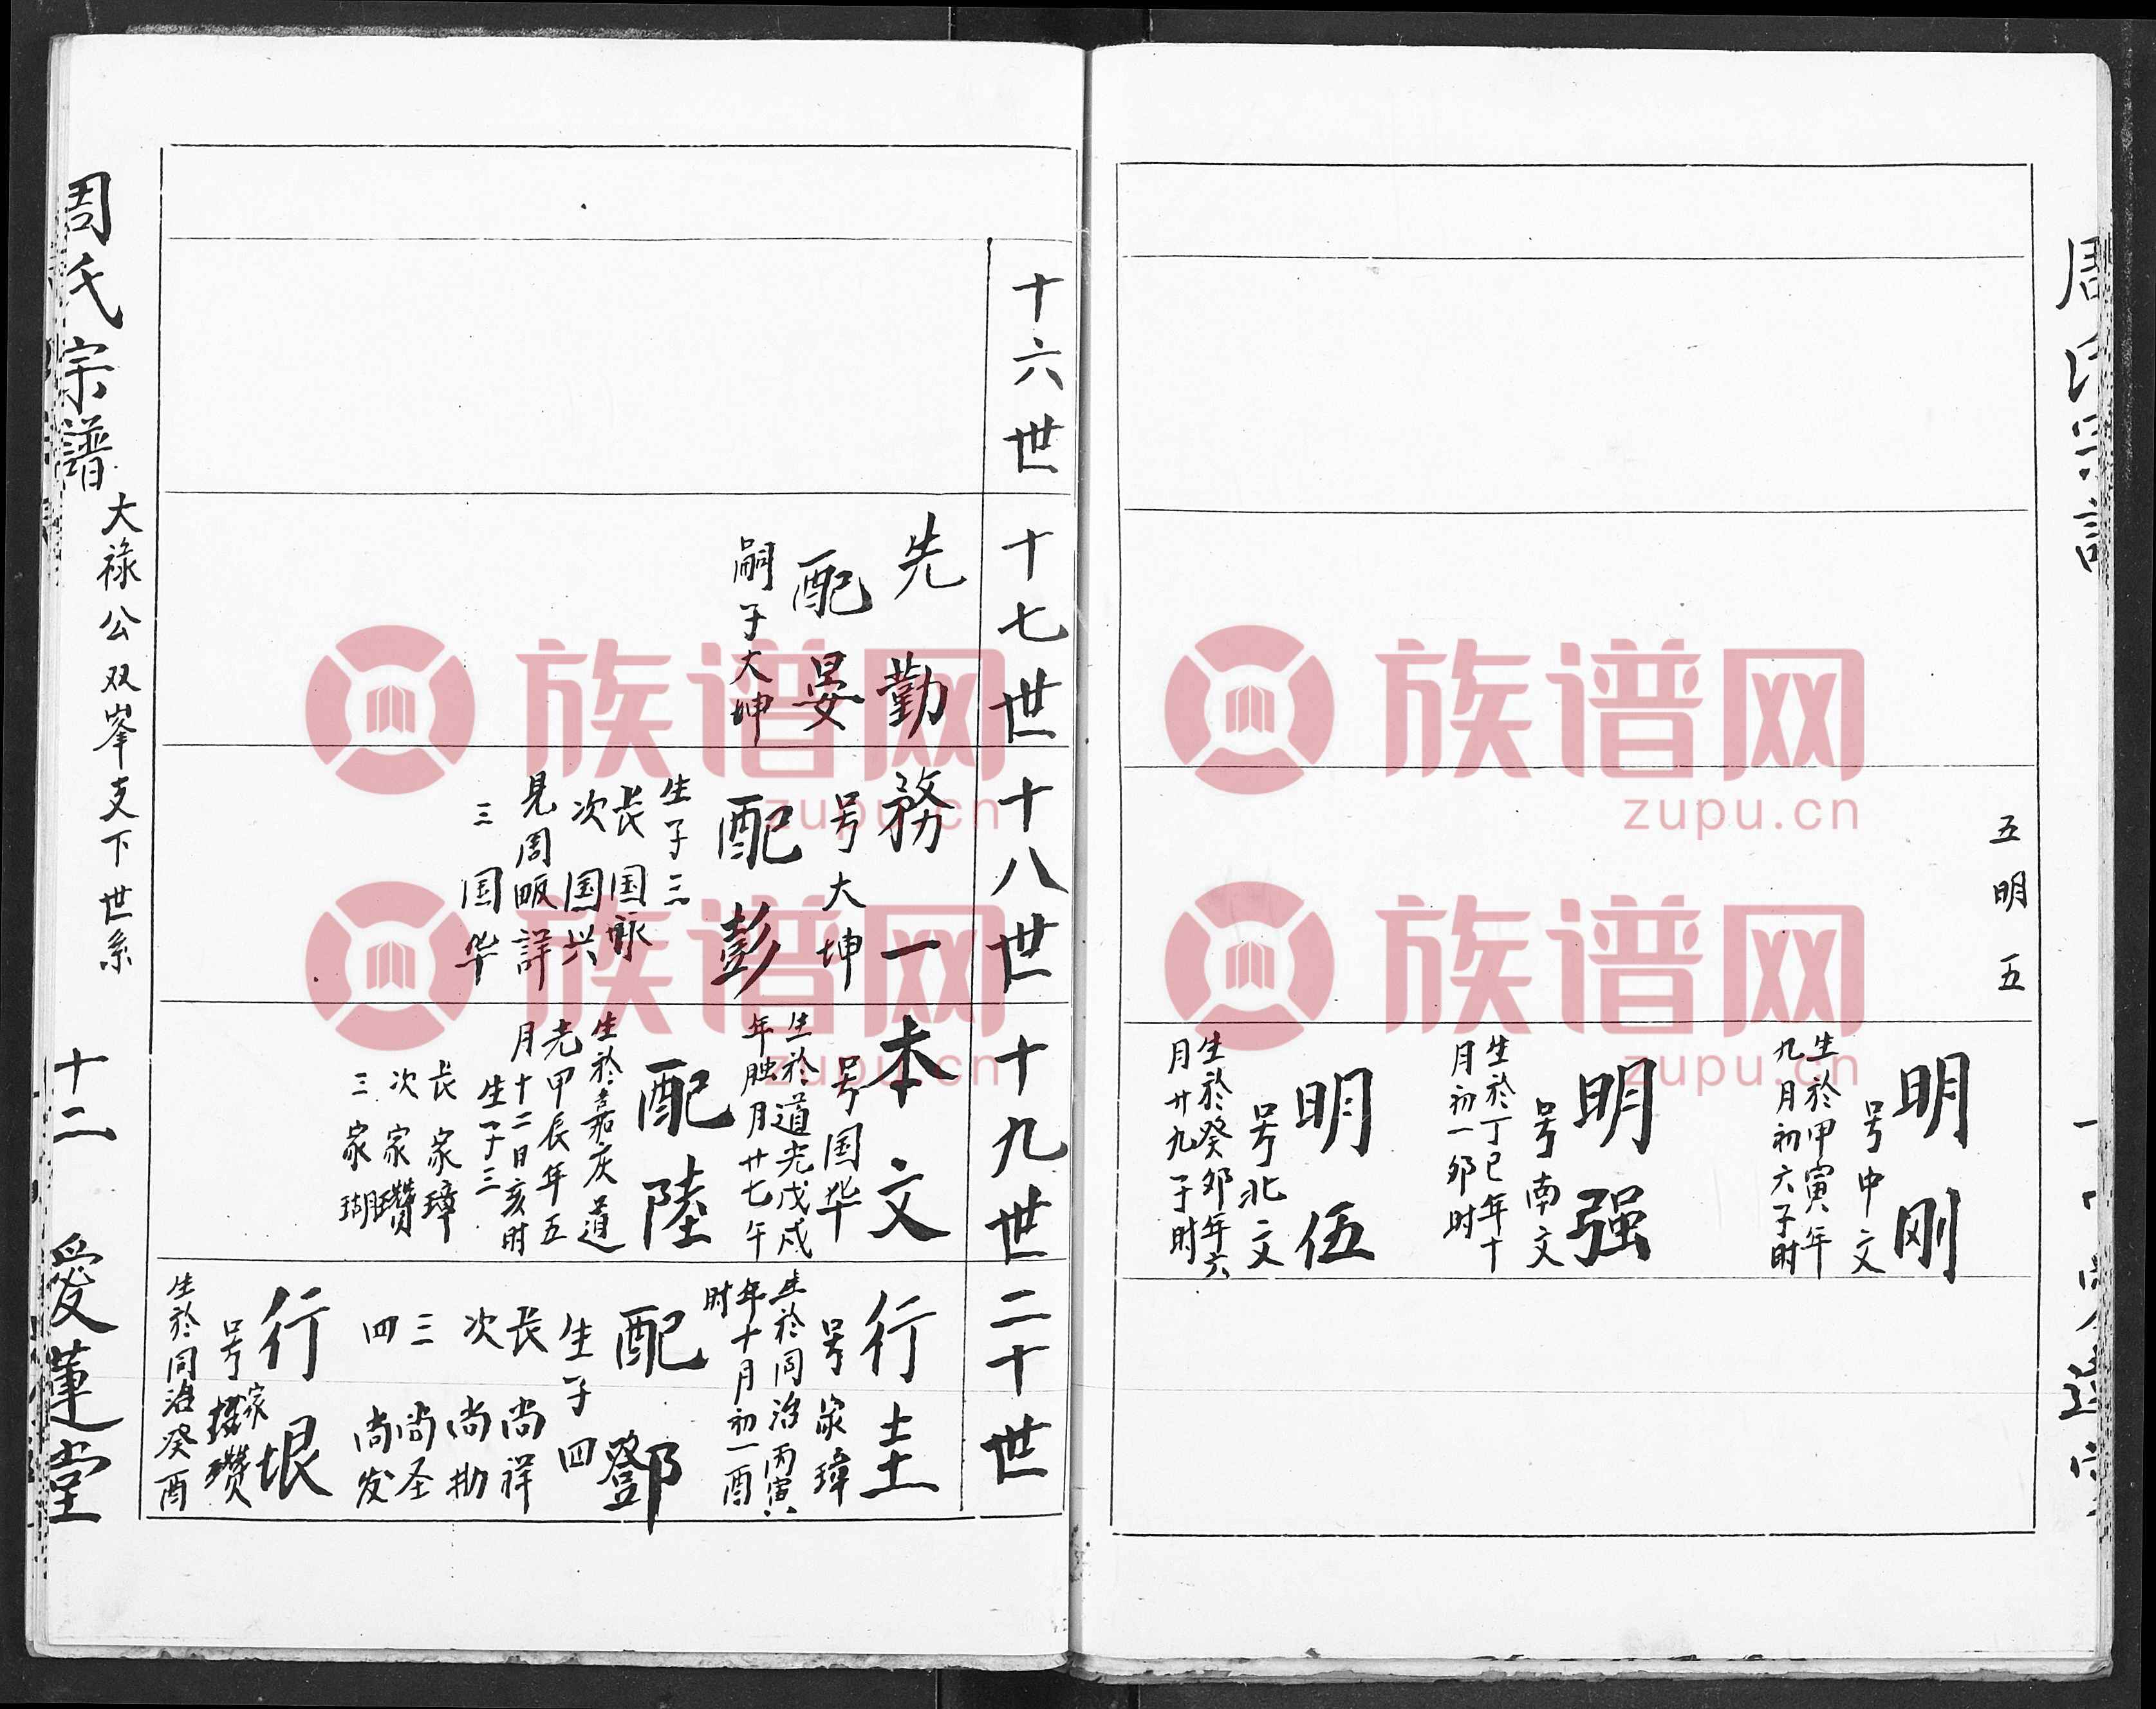 五 明 五
明刚
号中文
生於甲寅年
九月初六子时
明强
号南文
生於丁巳年十
月初一卯时
明伍
号北文
生於癸卯年六
月廿九子时
十六世
十七世
十八世
十九世
二十世
先勤
配晏
嗣子大坤
務一
号大坤
配彭
生子三
长 国脉
次 国兴
見周畈詳
三 国华
本文
号国华
生於道光戊戌
年腊月廿七午
配陸
生於嘉庆道
光甲辰年五
月十二日亥时
生子三
长 家璋
次 家瓒
三 家瑚
行圭
号家璋
生於同治丙寅
年十月初一酉
时
配鄧
生子四
长 尚祥
次 尚勋
三 尚圣
四 尚发
行垠
号家瓒
生於同治癸酉
周氏宗譜
大祿公双峯支下世系
十二
愛蓮堂
周氏宗譜
族谱网
zupu.cn
族谱网
zupu.cn
族谱网
zupu.cn
族谱网
zupu.cn